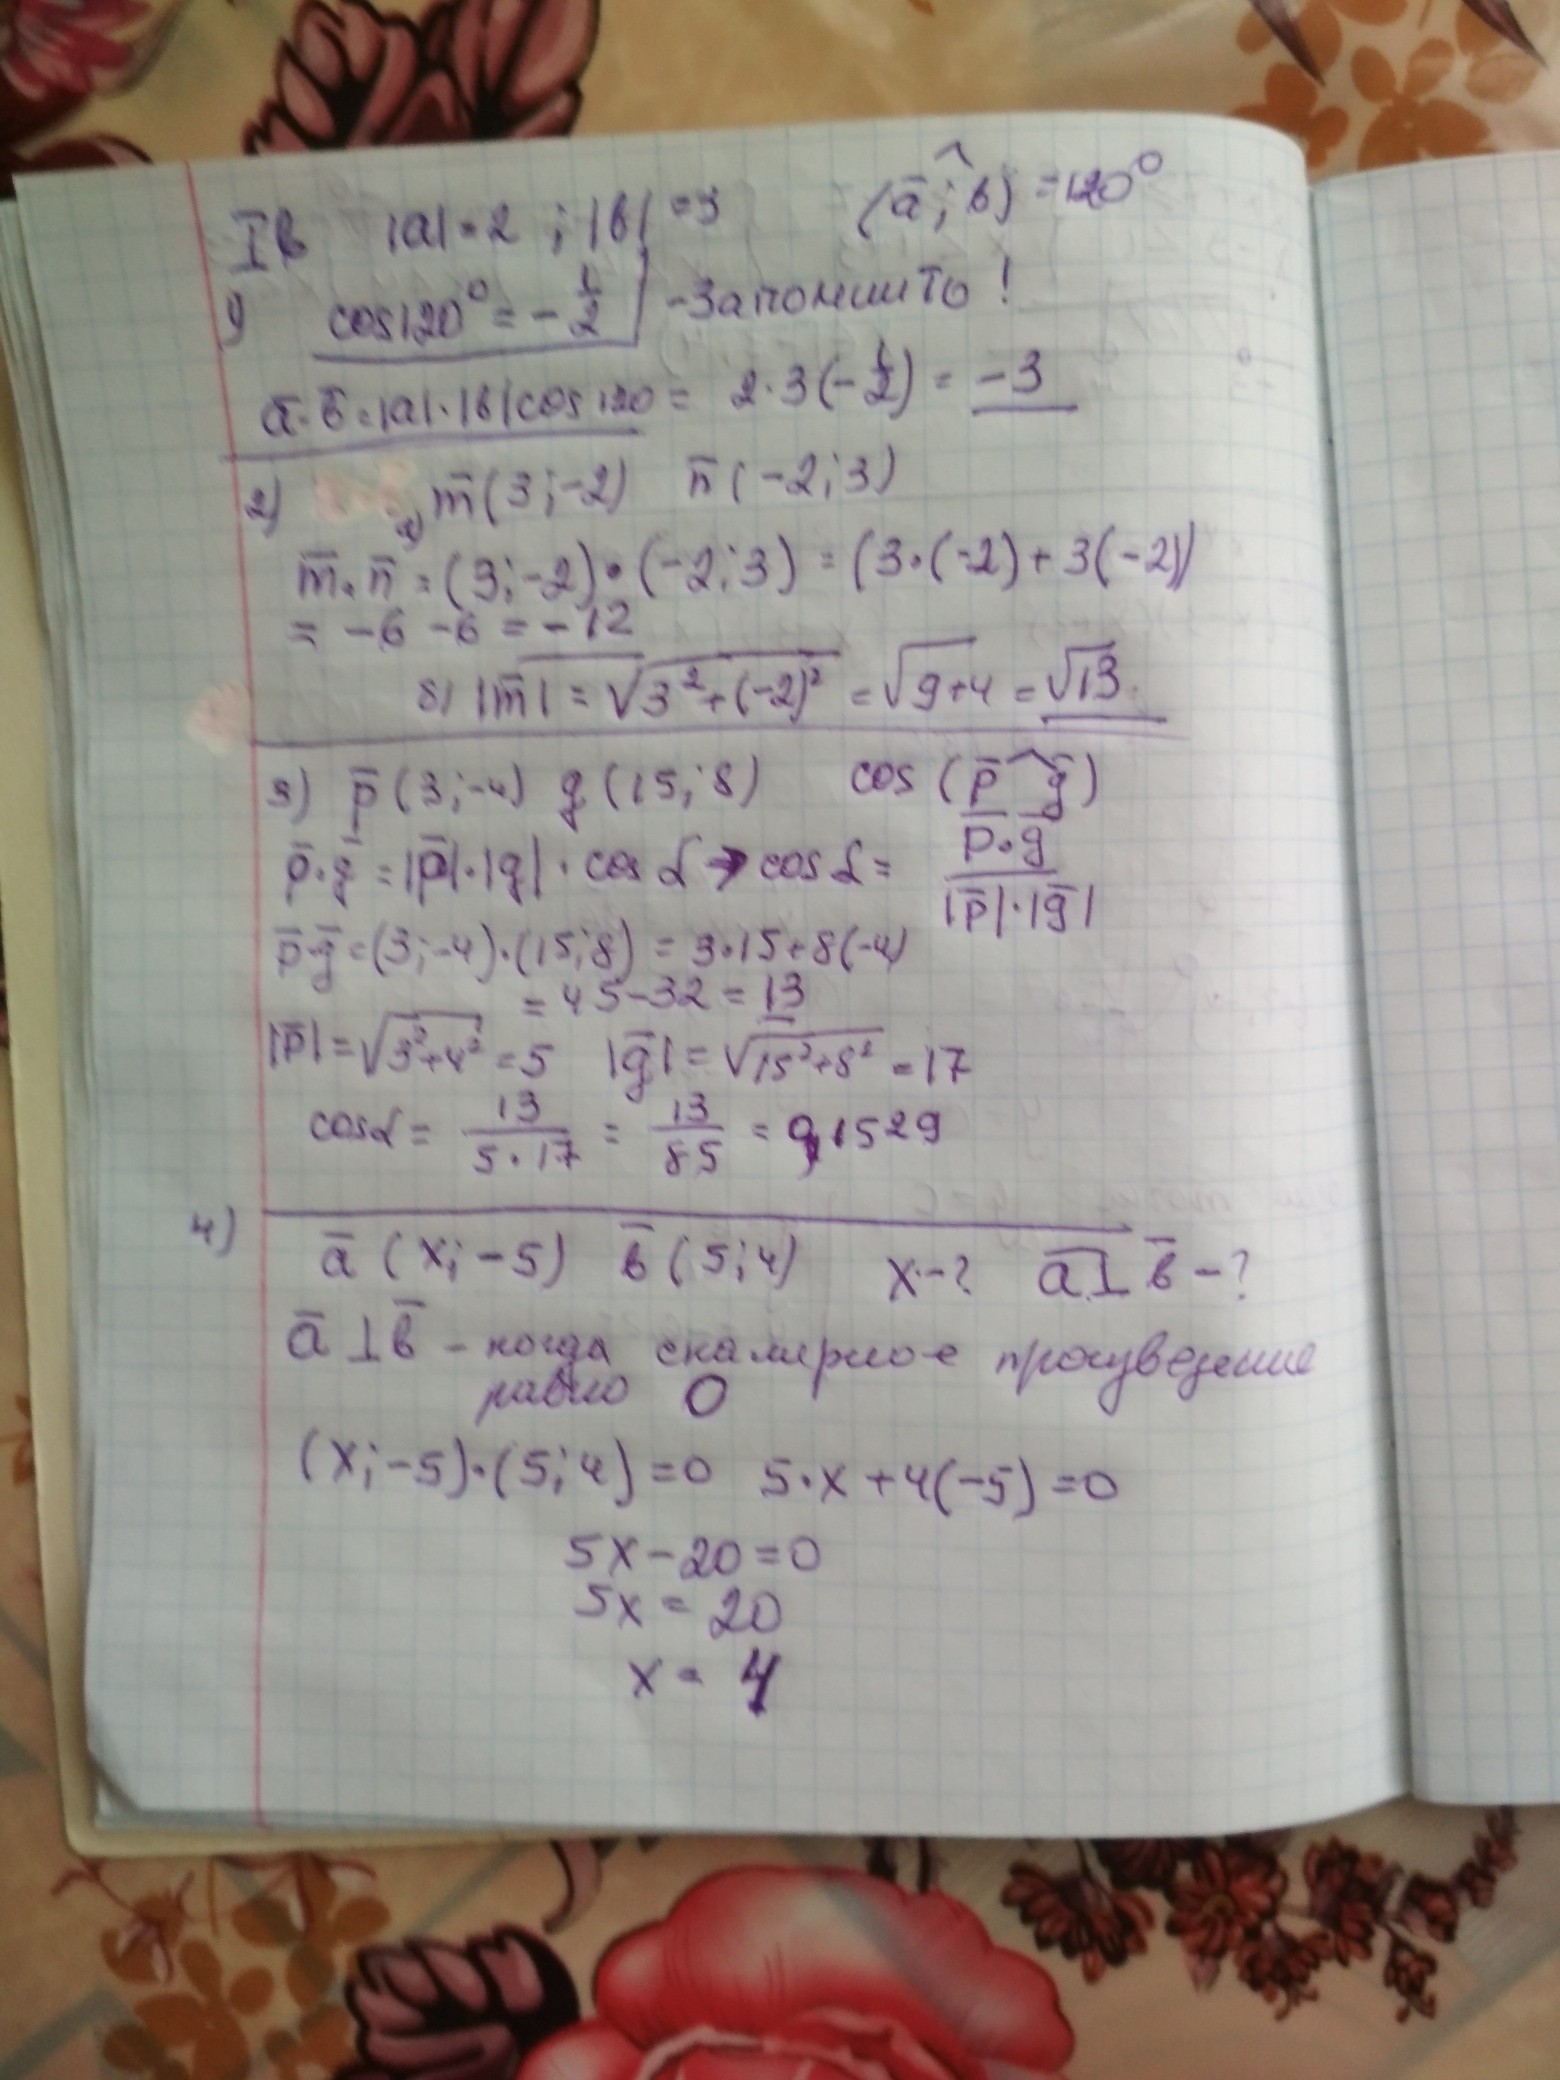 I в |a| = 2 ; |b| = 3 (a̅ ; b) = 120°
1) cos120° = -1/2 - Запомнить !
a̅·b̅ = |a|·|b| cos 120 = 2·3(-1/2) = -3
2) а) m̅ (3; -2) n̅ (-2; 3)
m̅·n̅ = (3; -2)·(-2; 3) = (3·(-2) + 3(-2))
= -6 -6 = -12
б) |m̅| = √3²+(-2)² = √9+4 = √13
3) p̅ (3; -4) g (15; 8) cos (p̅ ^ g̅)
p̅·g̅ = |p̅|·|g|·cos α → cos α = p̅·g̅ / |p̅|·|g̅|
p̅·g̅ = (3; -4)·(15; 8) = 3·15+8(-4)
= 45-32 = 13
|p̅| = √3²+4² = 5 |g̅| = √15²+8² = 17
cos α = 13/5·17 = 13/85 = 0,1529
4) a̅ (x; -5) b̅ (5; 4) x - ? a̅ ⊥ b̅ - ?
a̅ ⊥ b̅ - когда скалярное произведение
равно 0
(x; -5)·(5; 4) = 0 5·x + 4(-5) = 0
5x - 20 = 0
5x = 20
x = 4